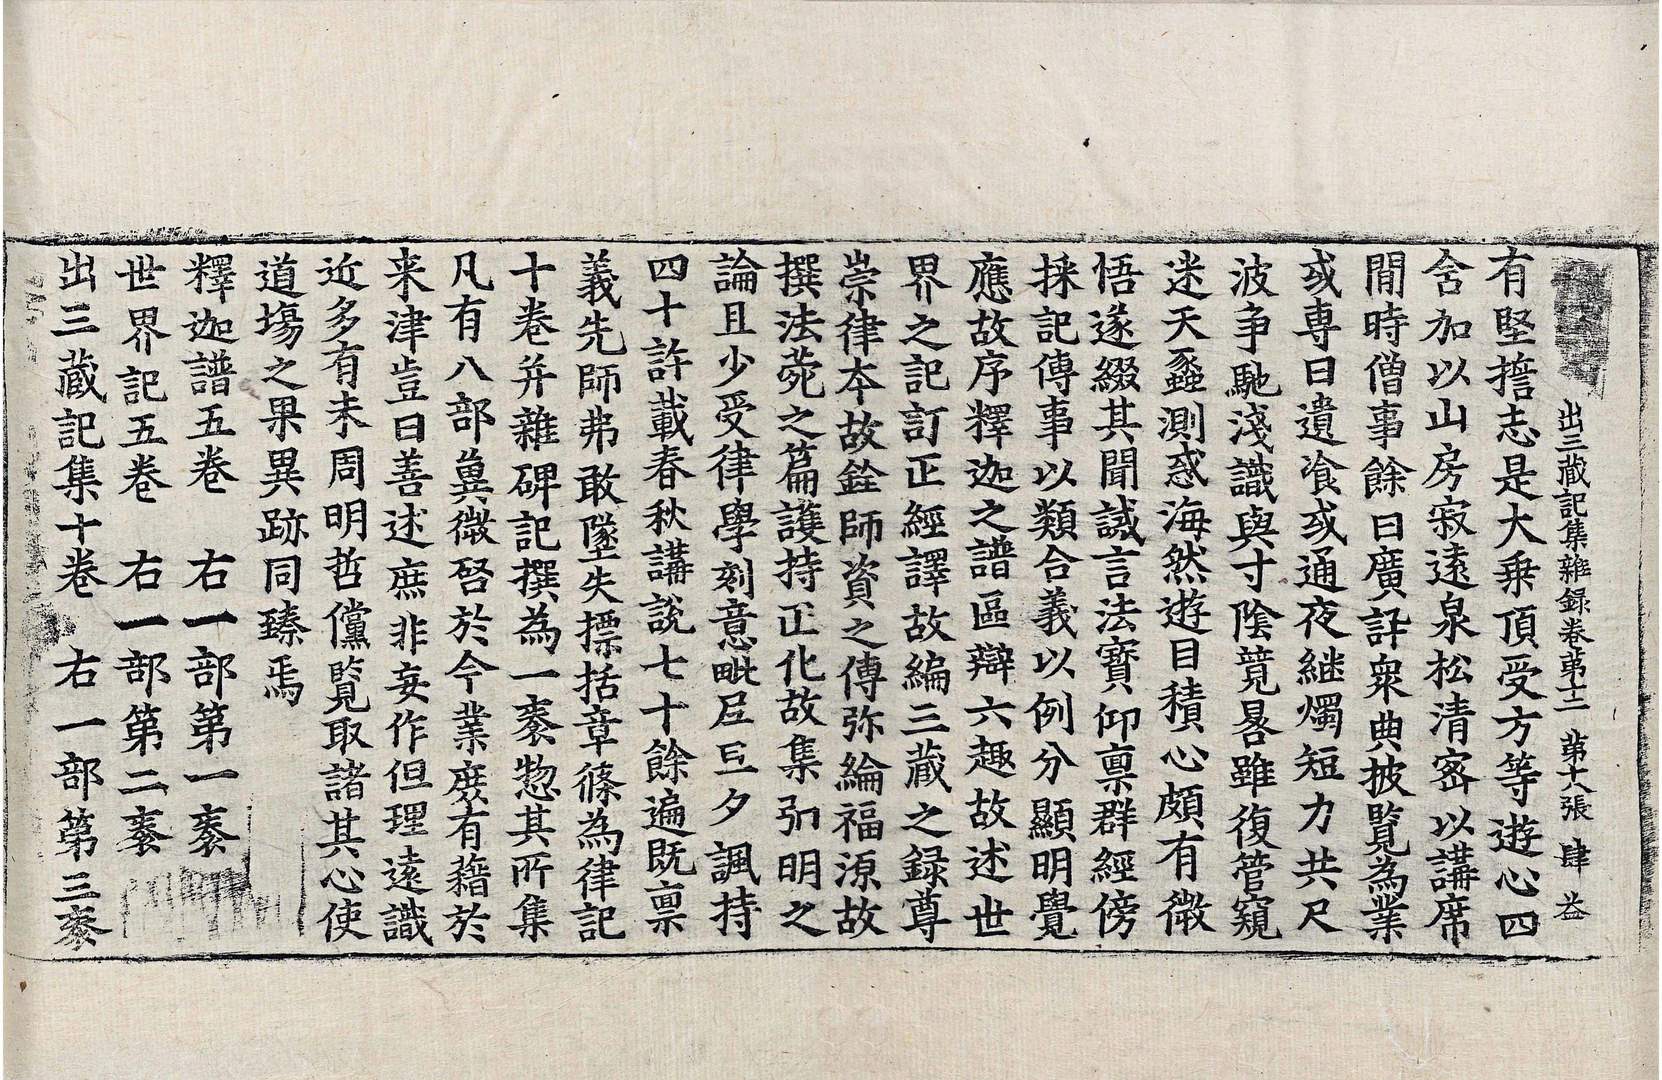 出三藏記集雜録卷第十二 第十八張 肆 益
有堅擔志是大乗頂受方等遊心四
舍加以山房寂遠泉松清密以講席
閒時僧事餘日廣訐衆典披覽為業
或専日遺飡或通夜継燭短力共尺
波争馳淺識與寸陰競晷雖復管窺
迷天蠡測惑海然遊目積心頗有微
悟遂綴其聞誠言法寳仰禀群經傍
採記傳事以類合義以例分顯明覺
應故序釋迦之譜區辯六趣故述世
界之記訂正經譯故編三藏之録尊
崇律夲故銓師資之傳弥綸福源故
撰法菀之篇護持正化故集弘明之
論且少受律學刻意毗尼旦夕諷持
四十許載春秋講說七十餘遍既禀
義先師弗敢墜失摽括章條為律記
十巻并雜碑記撰為一袠惣其所集
凡有八部兾微啓於今業庶有藉於
来津豈曰善述庶非妄作但理遠識
近多有未周明哲儻覧取諸其心使
道場之果異跡同臻焉
釋迦譜五卷 右一部第一袠
世界記五卷 右一部第二袠
出三藏記集十卷 右一部第三袠